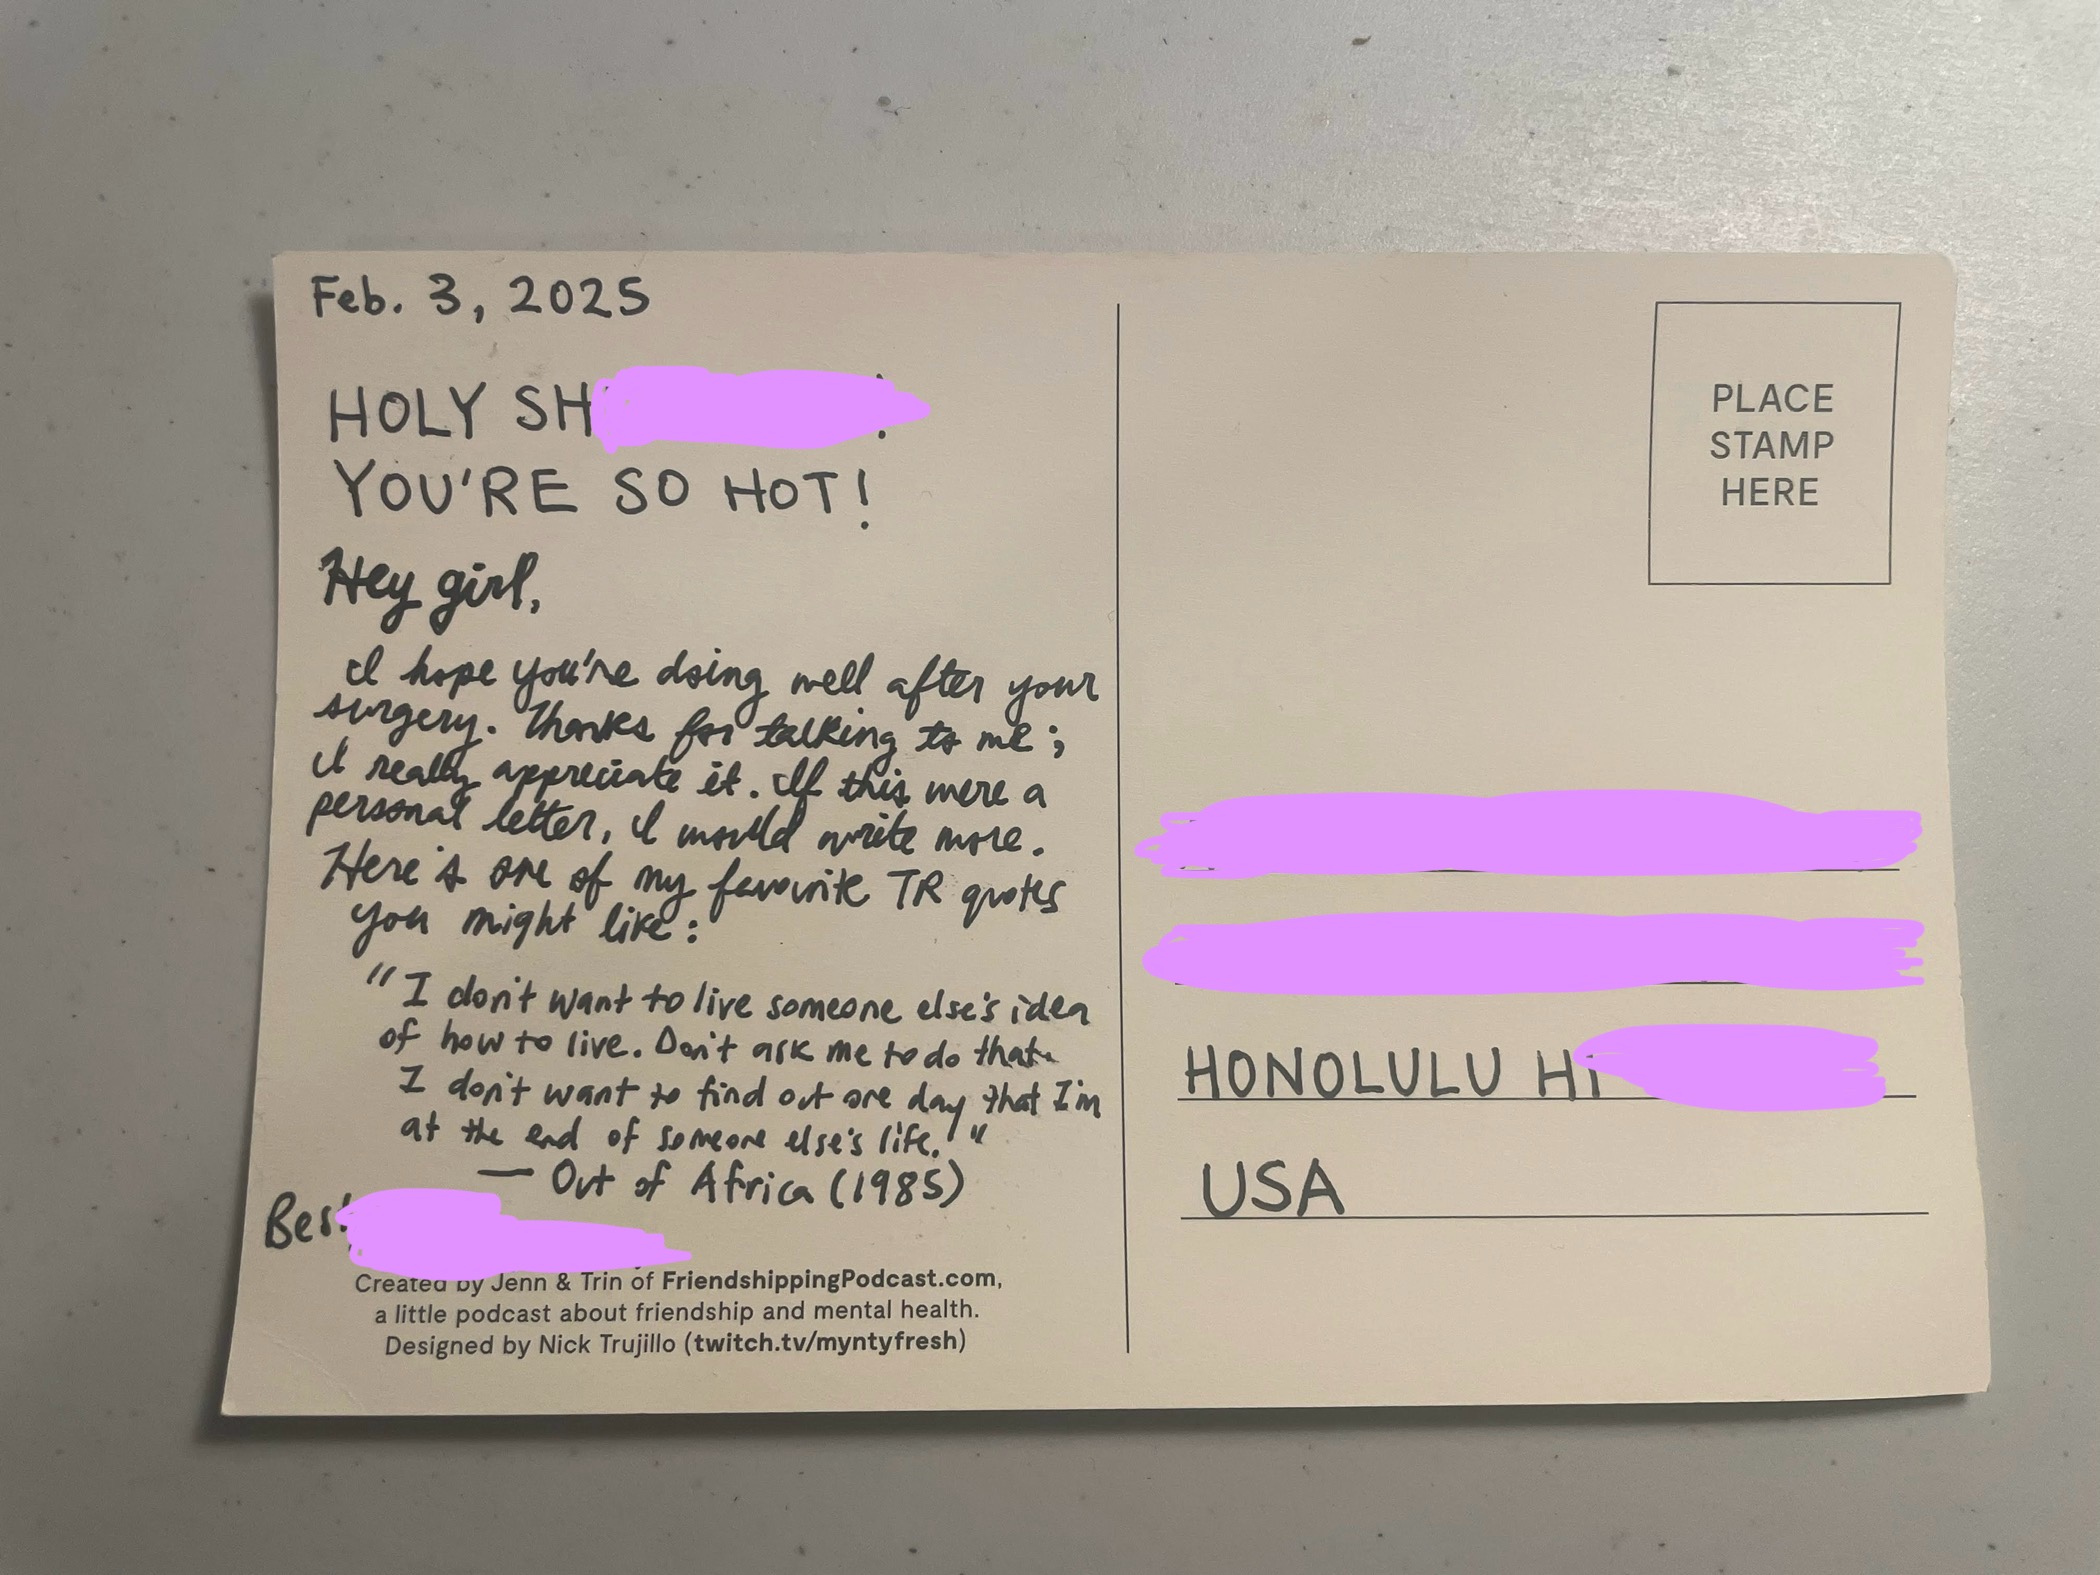 Feb. 3, 2025
HOLY SH
YOU'RE SO HOT!
Hey girl,
I hope you're doing well after your
surgery. Thanks for talking to me;
I really appreciate it. If this were a
personal letter, I would write more.
Here's one of my favourite TR quotes
you might like:
"I don't want to live someone else's idea
of how to live. Don't ask me to do that.
I don't want to find out one day that I'm
at the end of someone else's life."
— Out of Africa (1985)
Best
Created by Jenn & Trin of FriendshippingPodcast.com,
a little podcast about friendship and mental health.
Designed by Nick Trujillo (twitch.tv/myntyfresh)
PLACE
STAMP
HERE
HONOLULU HI
USA